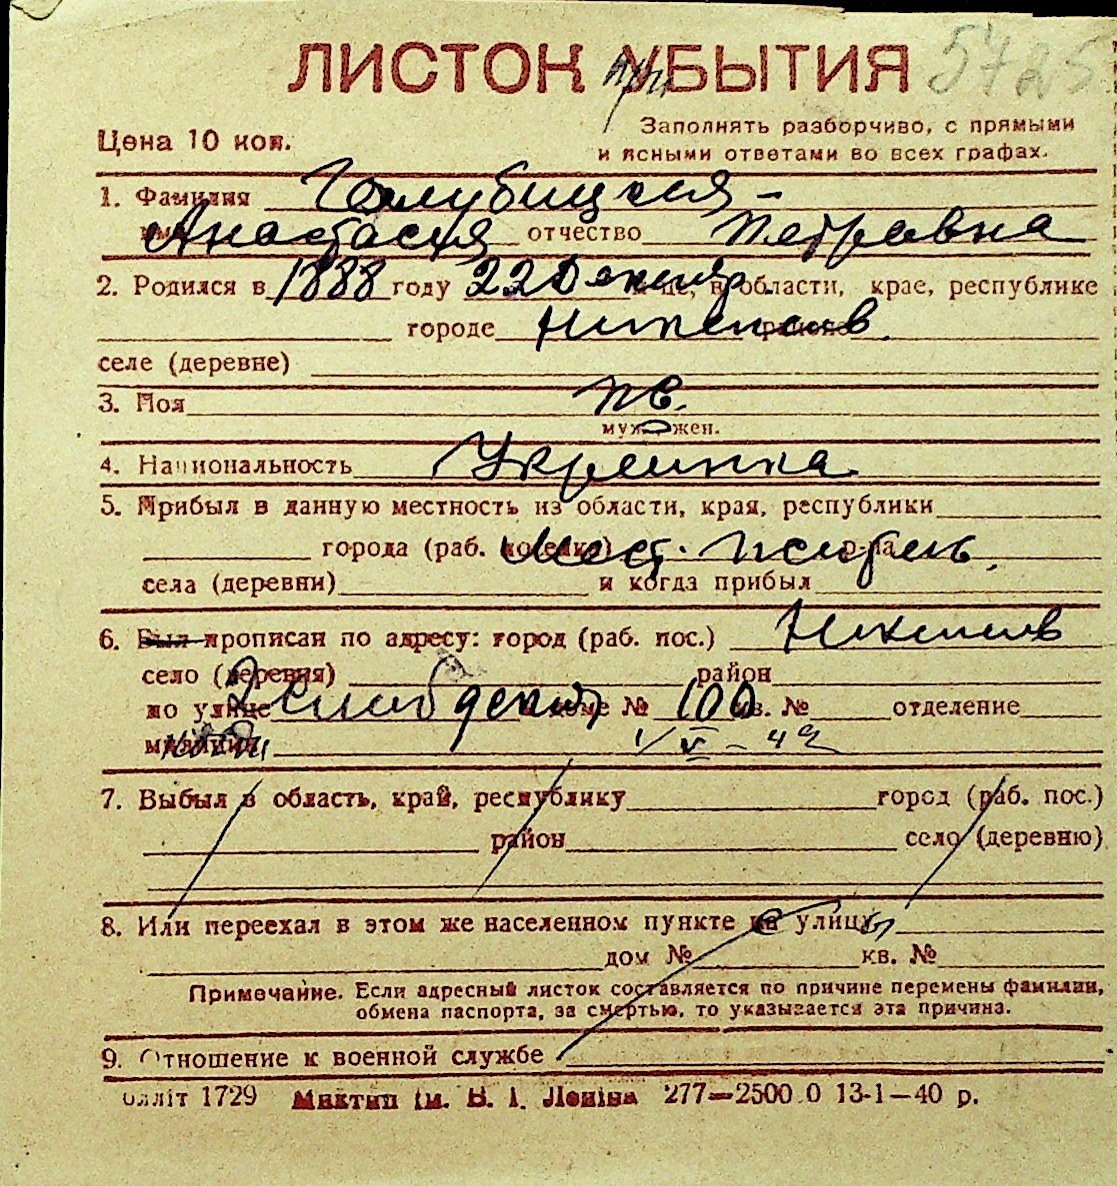 ЛИСТОК УБЫТИЯ 5725
при
Цена 10 коп.
Заполнять разборчиво, с прямыми
и ясными ответами во всех графах.
1. Фамилия Голубицкая
имя Анастасия отчество Петровна
2. Родился в 1888 году 22 Декабр м-це, в области, крае, республике
городе районе
селе (деревне)
3. Пол
муж. жен.
4. Национальность Украинка
5. Прибыл в данную местность из области, края, республики
города (раб. поселка) Мест. житель р-на
села (деревни) и когда прибыл
6. Был прописан по адресу: город (раб. пос.)
село (деревня) район
по улице доме № 100 кв. № отделение
милиции 1/V-42
7. Выбыл в область, край, республику город (раб. пос.)
район село (деревню)
8. Или переехал в этом же населенном пункте на улицу
дом № кв. №
Примечание. Если адресный листок составляется по причине перемены фамилии,
обмена паспорта, за смертью, то указывается эта причина.
9. Отношение к военной службе
бллiт 1729 Миктип iм. В. I. Ленiна 277—2500.0 13-1—40 р.